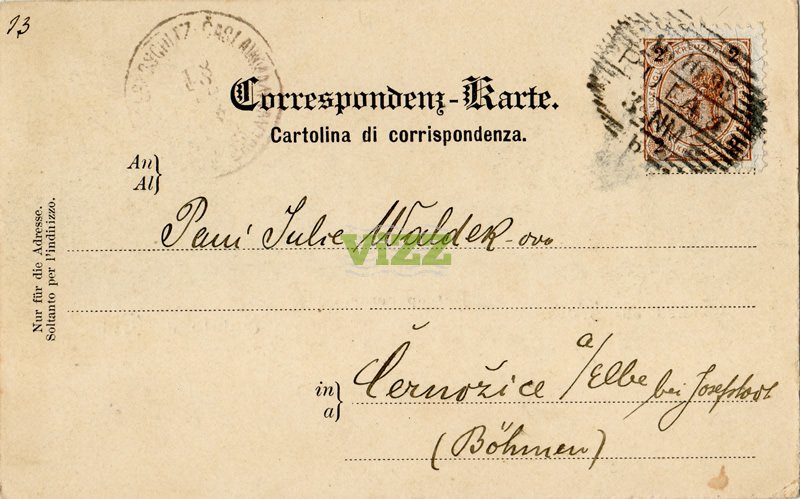 13
Correspondenz-Karte.
Cartolina di corrispondenza.
An
Al
Paní Julie Waldek-ova
VIZZ
Nur für die Adresse.
Soltanto per l'indirizzo.
in
a
Černožice a/Elbe bei Josefstadt
(Böhmen)
2 2